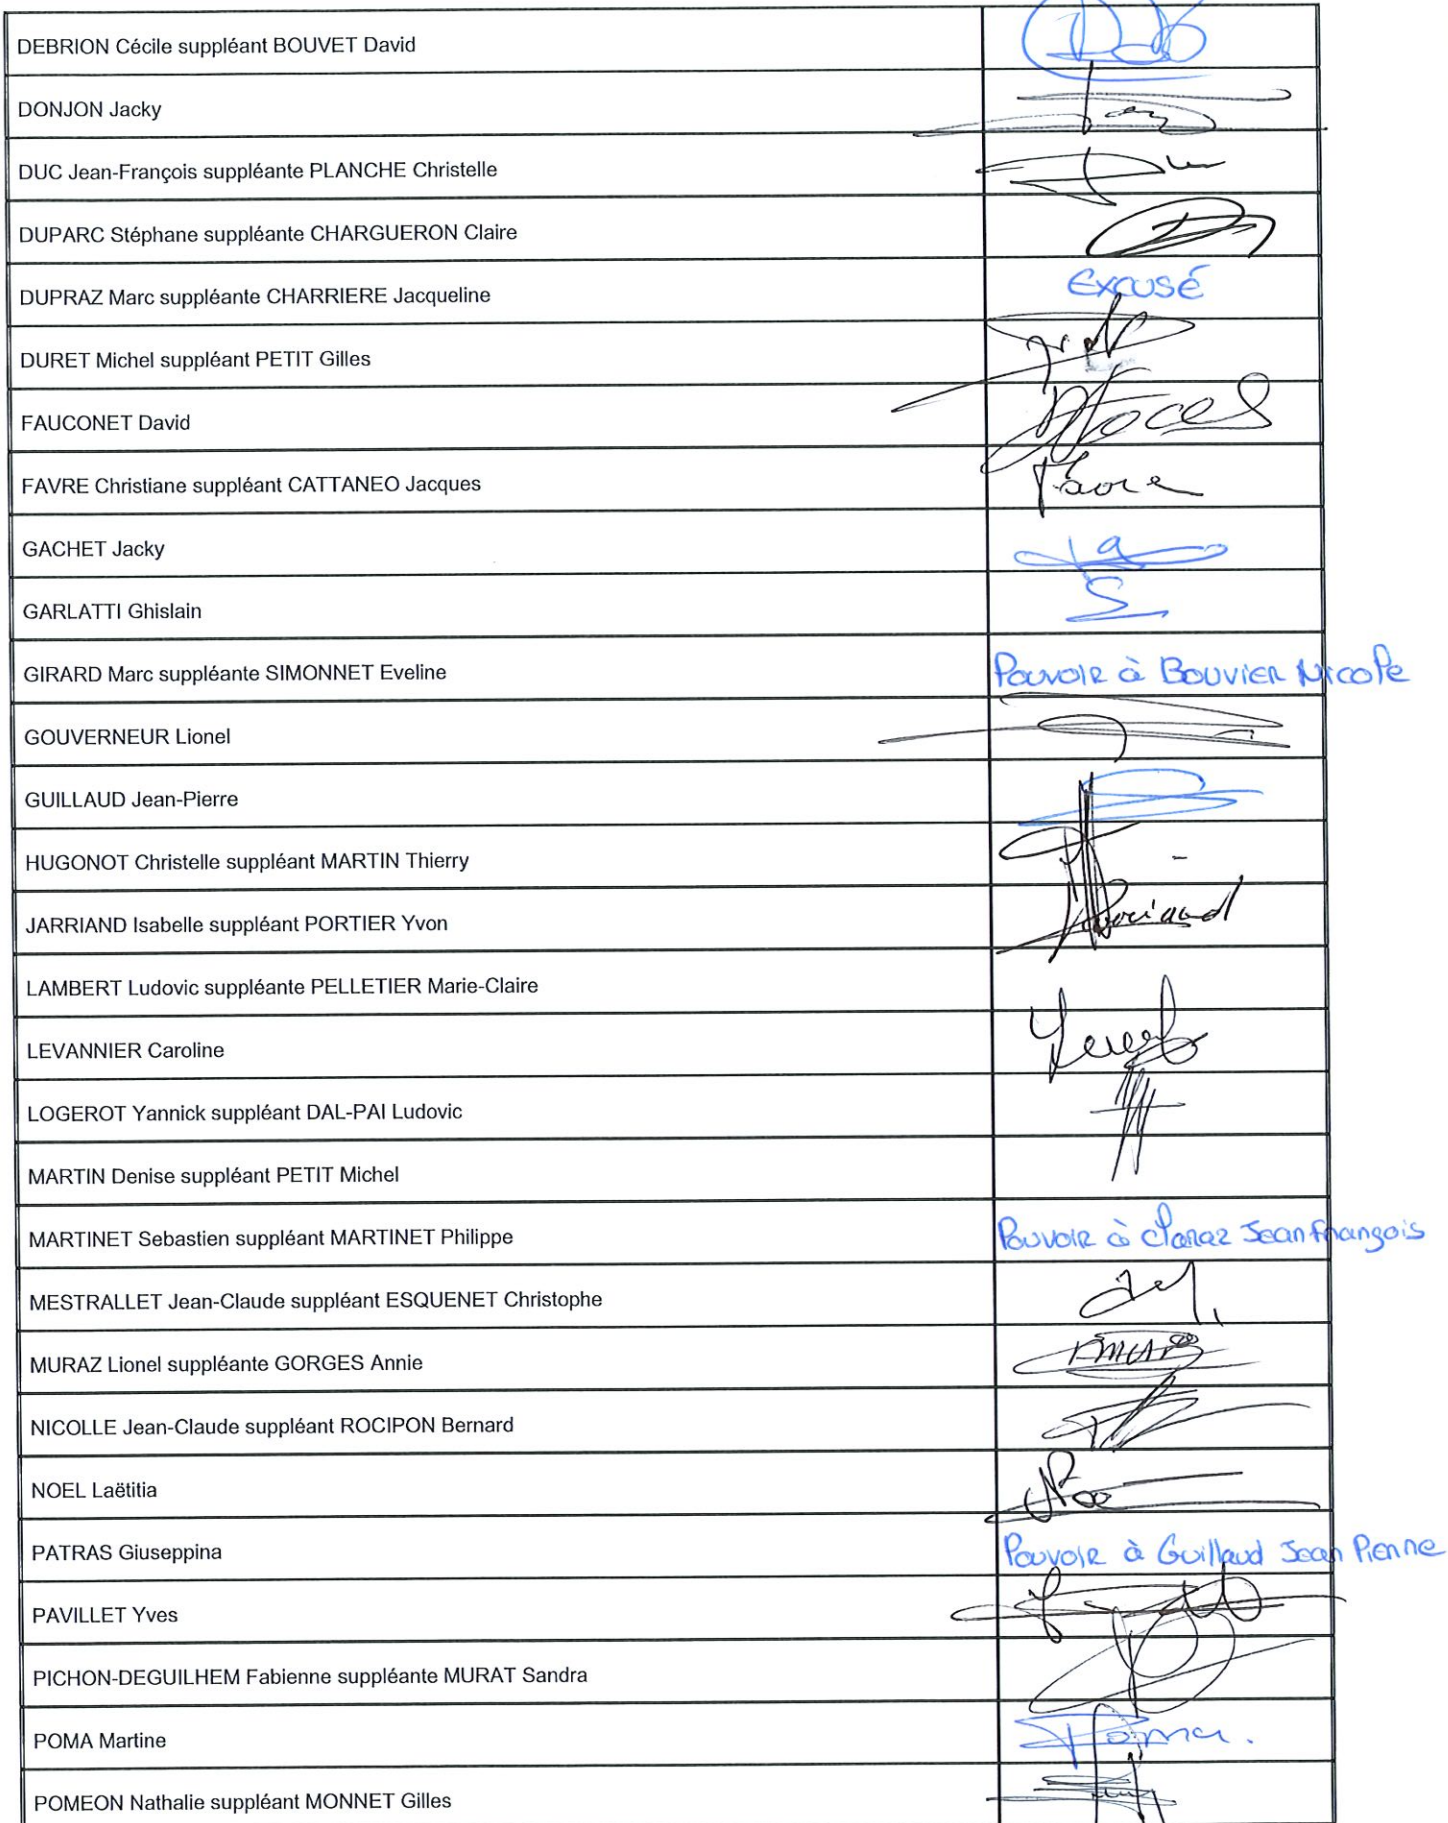 DEBRION Cécile suppléant BOUVET David
DONJON Jacky
DUC Jean-François suppléante PLANCHE Christelle
DUPARC Stéphane suppléante CHARGUERON Claire
DUPRAZ Marc suppléante CHARRIERE Jacqueline EXCUSÉ
DURET Michel suppléant PETIT Gilles
FAUCONET David
FAVRE Christiane suppléant CATTANEO Jacques Favre
GACHET Jacky
GARLATTI Ghislain
GIRARD Marc suppléante SIMONNET Eveline Pouvoir à Bouvier Nicole
GOUVERNEUR Lionel
GUILLAUD Jean-Pierre
HUGONOT Christelle suppléant MARTIN Thierry
JARRIAND Isabelle suppléant PORTIER Yvon Jarriand
LAMBERT Ludovic suppléante PELLETIER Marie-Claire
LEVANNIER Caroline
LOGEROT Yannick suppléant DAL-PAI Ludovic
MARTIN Denise suppléant PETIT Michel
MARTINET Sebastien suppléant MARTINET Philippe Pouvoir à Claraz Jean François
MESTRALLET Jean-Claude suppléant ESQUENET Christophe
MURAZ Lionel suppléante GORGES Annie
NICOLLE Jean-Claude suppléant ROCIPON Bernard
NOEL Laëtitia
PATRAS Giuseppina Pouvoir à Guillaud Jean Pierre
PAVILLET Yves
PICHON-DEGUILHEM Fabienne suppléante MURAT Sandra
POMA Martine Poma.
POMEON Nathalie suppléant MONNET Gilles